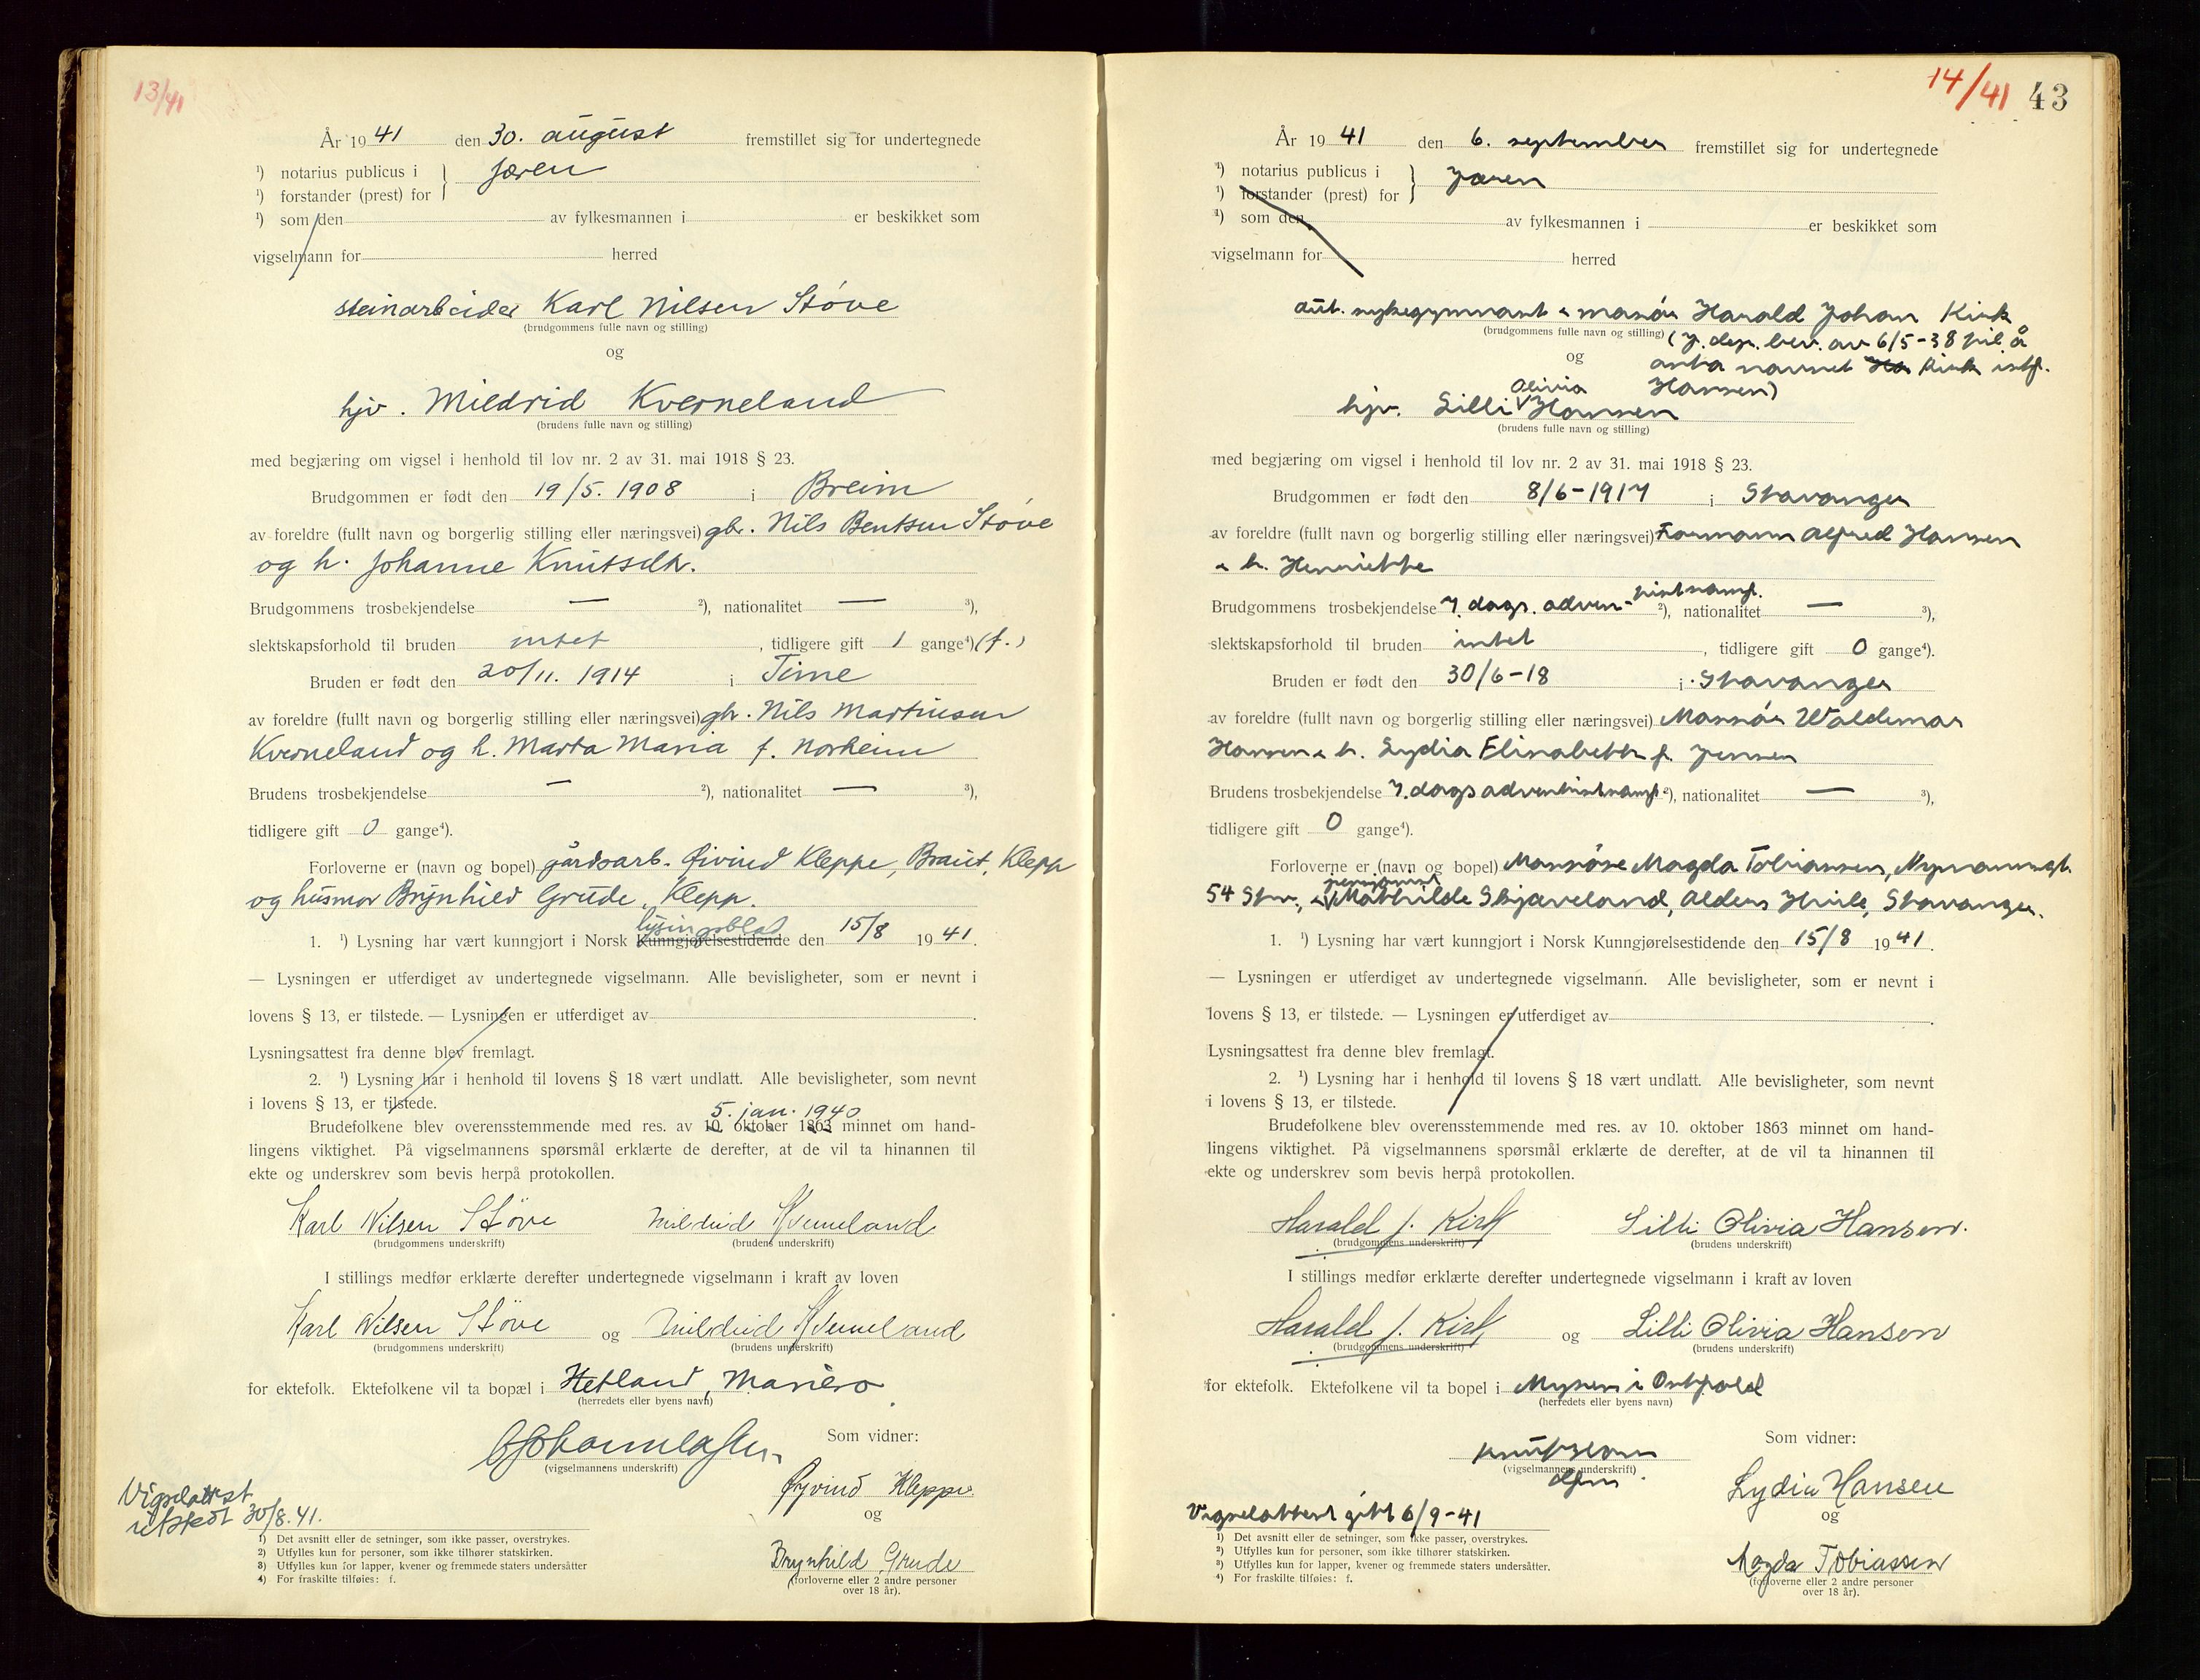 13/41
År 1941 den 30. august fremstillet sig for undertegnede
¹) notarius publicus i } Jæren
¹) forstander (prest) for
¹) som den av fylkesmannen i er beskikket som
vigselmann for herred
steinarbeider Karl Nilsen Støve
(brudgommens fulle navn og stilling)
og
hjv. Mildrid Kverneland
(brudens fulle navn og stilling)
med begjæring om vigsel i henhold til lov nr. 2 av 31. mai 1918 § 23.
Brudgommen er født den 19/5. 1908 i Breim
av foreldre (fullt navn og borgerlig stilling eller næringsvei) gbr. Nils Bentsen Støve
og h. Johanne Knutsdtr.
Brudgommens trosbekjendelse — ²), nationalitet — ³),
slektskapsforhold til bruden intet, tidligere gift 1 gange⁴) (f.)
Bruden er født den 20/11. 1914 i Time
av foreldre (fullt navn og borgerlig stilling eller næringsvei) gbr. Nils Martinsen
Kverneland og h. Marta Maria f. Norheim
Brudens trosbekjendelse — ²), nationalitet — ³),
tidligere gift 0 gange⁴).
Forloverne er (navn og bopel) gårdsarb. Øivind Kleppe, Braut, Klepp
og husmor Brynhild Grude, Klepp.
lysingsblad
1. ¹) Lysning har vært kunngjort i Norsk Kunngjørelsestidende den 15/8 1941.
— Lysningen er utferdiget av undertegnede vigselmann. Alle bevisligheter, som er nevnt i
lovens § 13, er tilstede. — Lysningen er utferdiget av .
Lysningsattest fra denne blev fremlagt.
2. ¹) Lysning har i henhold til lovens § 18 vært undlatt. Alle bevisligheter, som nevnt
i lovens § 13, er tilstede.
5. jan. 1940
Brudefolkene blev overensstemmende med res. av 10. oktober 1863 minnet om hand-
lingens viktighet. På vigselmannens spørsmål erklærte de derefter, at de vil ta hinannen til
ekte og underskrev som bevis herpå protokollen.
Karl Nilsen Støve Mildrid Kverneland
(brudgommens underskrift) (brudens underskrift)
I stillings medfør erklærte derefter undertegnede vigselmann i kraft av loven
Karl Nilsen Støve og Mildrid Kverneland
(brudgommens underskrift) (brudens underskrift)
for ektefolk. Ektefolkene vil ta bopæl i Hetland, Mariero
(herredets eller byens navn)
Som vidner:
(vigselmannens underskrift)
Øyvind Kleppe
og
Brynhild Grude
(forloverne eller 2 andre personer
over 18 år).
Vigselattest
utstedt 30/8.41.
1) Det avsnitt eller de setninger, som ikke passer, overstrykes.
2) Utfylles kun for personer, som ikke tilhører statskirken.
3) Utfylles kun for lapper, kvener og fremmede staters undersåtter
4) For fraskilte tilføies: f.
14/41 43
År 1941 den 6. september fremstillet sig for undertegnede
¹) notarius publicus i } Jæren
¹) forstander (prest) for
¹) som den av fylkesmannen i er beskikket som
vigselmann for herred
aut. sykegymnast & massør Harald Johan Kirk
(brudgommens fulle navn og stilling) (J. dep. bev. av 6/5-38 til å
og anta navnet Kirk istf.
Hansen)
Olivia
hjv. Lilli Hansen
(brudens fulle navn og stilling)
med begjæring om vigsel i henhold til lov nr. 2 av 31. mai 1918 § 23.
Brudgommen er født den 8/6-1917 i Stavanger
av foreldre (fullt navn og borgerlig stilling eller næringsvei) Formann Alfred Hansen
& h. Henriette
Brudgommens trosbekjendelse 7. dags. adven-tistsamf. ²), nationalitet — ³),
slektskapsforhold til bruden intet, tidligere gift 0 gange⁴).
Bruden er født den 30/6-18 i Stavanger
av foreldre (fullt navn og borgerlig stilling eller næringsvei) Massør Waldemar
Hansen & h. Lydia Elisabeth f. Jensen
Brudens trosbekjendelse 7. dags adventistsamf. ²), nationalitet — ³),
tidligere gift 0 gange⁴).
Forloverne er (navn og bopel) Massøse Magda Tobiassen, Nymannsgt.
54 Stv., & Mathilde Skjæveland, Aldens Hvile, Stavanger.
1. ¹) Lysning har vært kunngjort i Norsk Kunngjørelsestidende den 15/8 1941.
— Lysningen er utferdiget av undertegnede vigselmann. Alle bevisligheter, som er nevnt i
lovens § 13, er tilstede. — Lysningen er utferdiget av .
Lysningsattest fra denne blev fremlagt.
2. ¹) Lysning har i henhold til lovens § 18 vært undlatt. Alle bevisligheter, som nevnt
i lovens § 13, er tilstede.
Brudefolkene blev overensstemmende med res. av 10. oktober 1863 minnet om hand-
lingens viktighet. På vigselmannens spørsmål erklærte de derefter, at de vil ta hinannen til
ekte og underskrev som bevis herpå protokollen.
Harald J. Kirk Lilli Olivia Hansen.
(brudgommens underskrift) (brudens underskrift)
I stillings medfør erklærte derefter undertegnede vigselmann i kraft av loven
Harald J. Kirk og Lilli Olivia Hansen
(brudgommens underskrift) (brudens underskrift)
for ektefolk. Ektefolkene vil ta bopel i Mysen i Østfold
(herredets eller byens navn)
Som vidner:
(vigselmannens underskrift)
Lydia Hansen
og
Magda Tobiassen
(forloverne eller 2 andre personer
over 18 år).
Vigselattest gitt 6/9-41
1) Det avsnitt eller de setninger, som ikke passer, overstrykes.
2) Utfylles kun for personer, som ikke tilhører statskirken.
3) Utfylles kun for lapper, kvener og fremmede staters undersåtter.
4) For fraskilte tilføies: f.